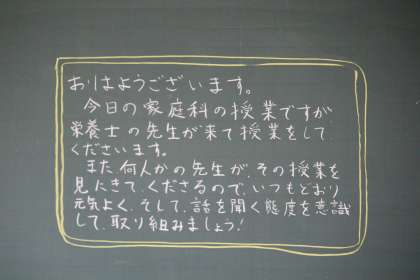 おはようございます。
今日の家庭科の授業ですが
栄養士の先生が来て授業をして
くださいます。
また、何人かの先生が、その授業を
見にきてくださるので、いつもどおり
元気よく、そして、話を聞く態度を意識
して、取り組みましょう!